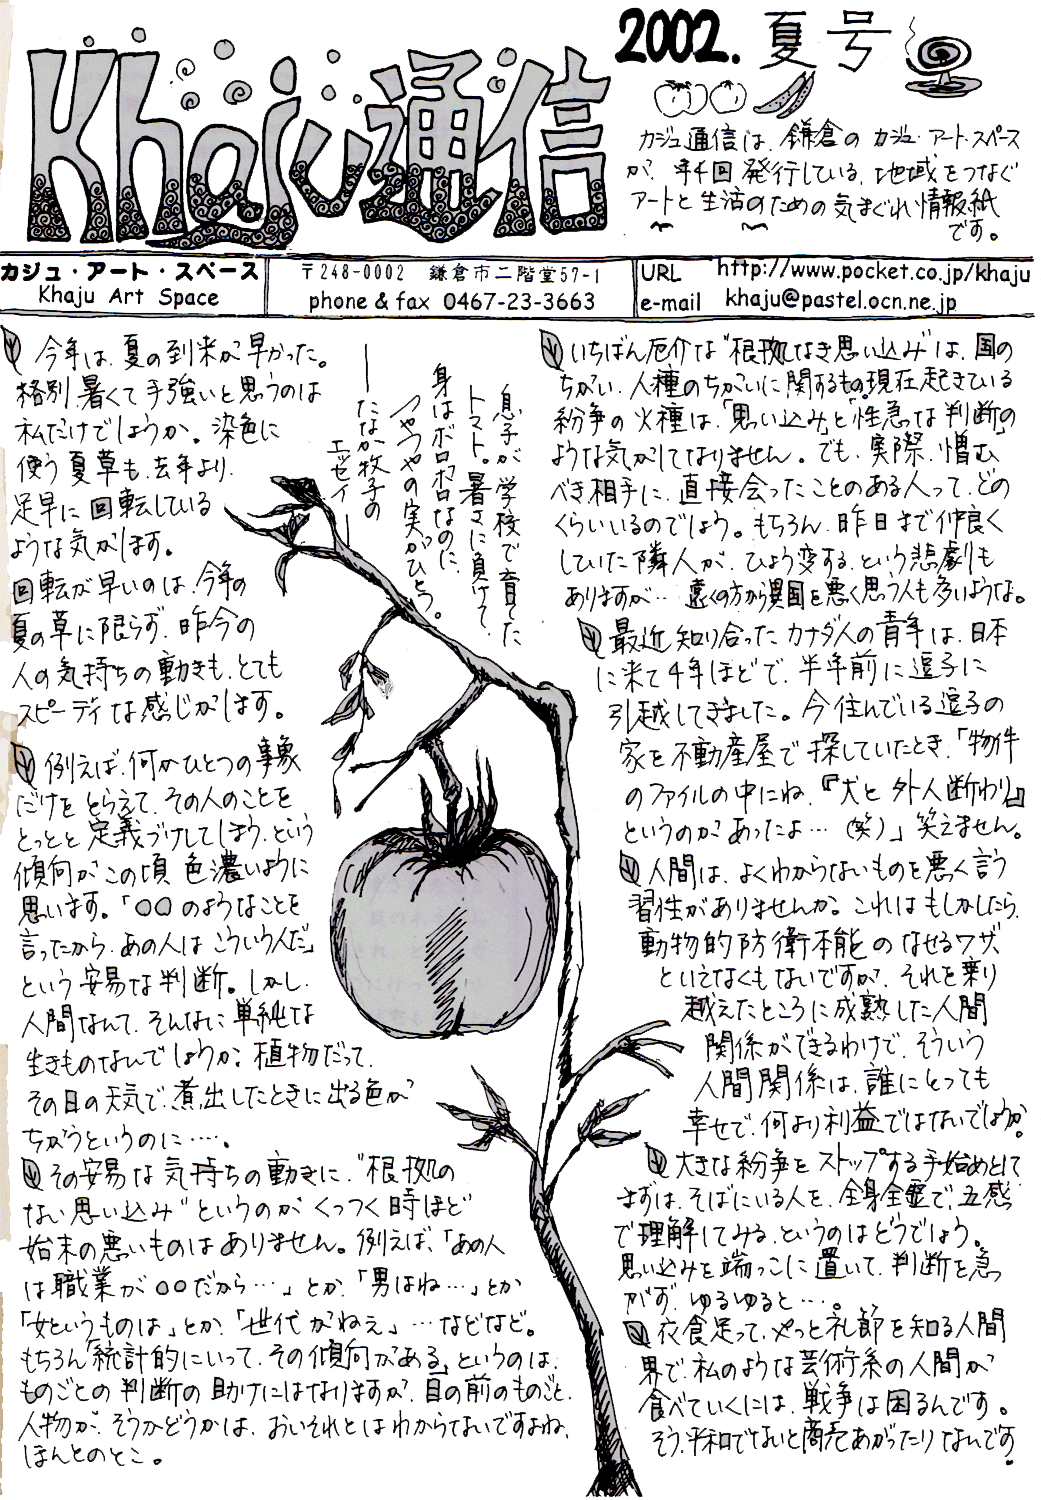 Khaju通信
2002. 夏号
カジュ通信は、鎌倉の カジュ・アート・スペース
が、年4回発行している、地域をつなぐ
アートと生活のための気まぐれ情報紙
です。
カジュ・アート・スペース
Khaju Art Space
〒248-0002 鎌倉市二階堂57-1
phone & fax 0467-23-3663
URL http://www.pocket.co.jp/khaju
e-mail khaju@pastel.ocn.ne.jp
今年は、夏の到来が早かった。
格別、暑くて手強いと思うのは
私だけでしょうか。染色に
使う夏草も、去年より、
足早に回転している
ような気がします。
回転が早いのは、今年の
夏の草に限らず、昨今の
人の気持ちの動きも、とても
スピーディな感じがします。
例えば、何かひとつの事象
だけをとらえて、その人のことを
とっとと定義づけしてしまう、という
傾向がこの頃色濃いように
思います。「○○のようなことを
言ったから、あの人はこういう人だ」
という安易な判断。しかし、
人間なんて、そんなに単純な
生きものなんでしょうか？植物だって、
その日の天気で、煮出したときに出る色が
ちがうというのに‥‥。
その安易な気持ちの動きに、"根拠の
ない思い込み"というのがくっつく時ほど
始末の悪いものはありません。例えば、「あの人
は職業が○○だから…」とか、「男はね…」とか
「女というものは」とか、「世代がねぇ」…などなど。
もちろん「統計的にいって、その傾向がある」というのは、
ものごとの判断の助けにはなりますが、目の前のものごと、
人物が、そうかどうかは、おいそれとはわからないですよね、
ほんとのとこ。
息子が学校で育てた
トマト。暑さに負けて、
身はボロボロなのに、
つやつやの実がひとつ。
――たなか牧子の
エッセイ――
いちばん厄介な"根拠なき思い込み"は、国の
ちがい、人種のちがいに関するもの。現在起きている
紛争の火種は、「思い込みと「性急な判断」の
ような気がしてなりません。でも、実際、憎む
べき相手に、直接会ったことのある人って、どの
くらいいるのでしょう。もちろん、昨日まで仲良く
していた隣人が、ひょう変する、という悲劇も
ありますが… 遠くの方から異国を悪く思う人も多いような。
最近知り合ったカナダ人の青年は、日本
に来て4年ほどで、半年前に逗子に
引越してきました。今住んでいる逗子の
家を不動産屋で探していたとき、「物件
のファイルの中にね、『犬と外人断わり』
というのがあったよ…（笑）」笑えません。
人間は、よくわからないものを悪く言う
習性がありませんか。これはもしかしたら、
動物的防衛本能のなせるワザ
といえなくもないですが、それを乗り
越えたところに成熟した人間
関係ができるわけで、そういう
人間関係は、誰にとっても
幸せで、何より利益ではないでしょうか？
大きな紛争をストップする手始めとして
まずは、そばにいる人を、全身全霊で、五感
で理解してみる、というのはどうでしょう。
思い込みを端っこに置いて、判断を急
がず、ゆるゆると…。
衣食足って、やっと礼節を知る人間
界で、私のような芸術系の人間が
食べていくには、戦争は困るんです。
そう、平和でないと商売あがったりなんです。